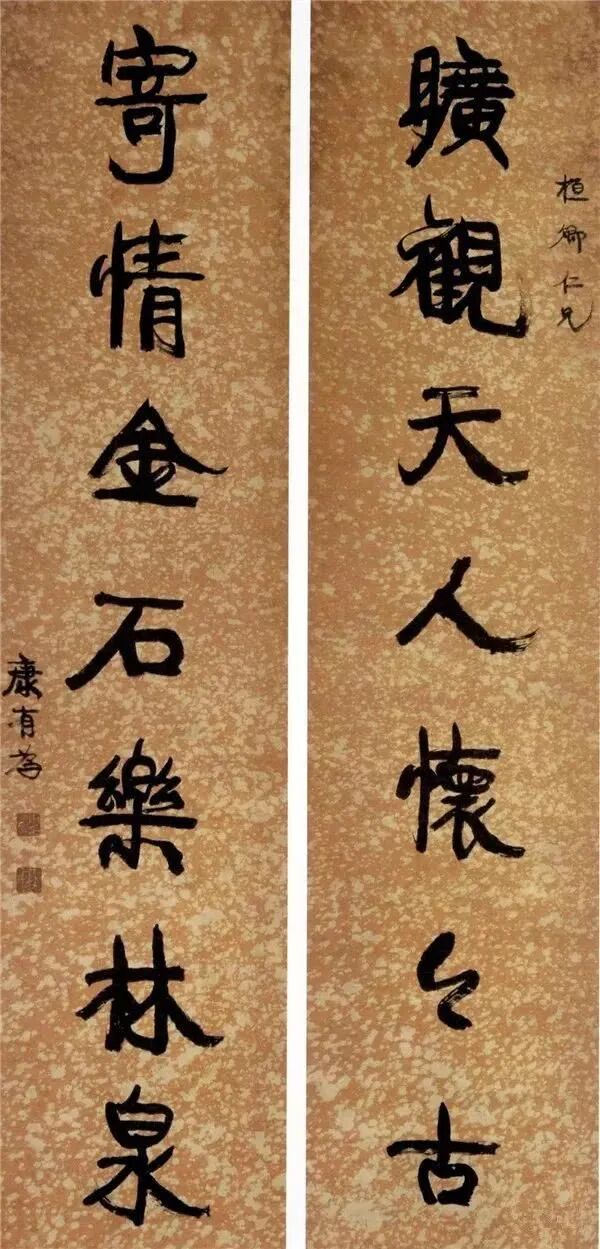 曠觀天人懷今古
桓卿仁兄
寄情金石樂林泉
康有為